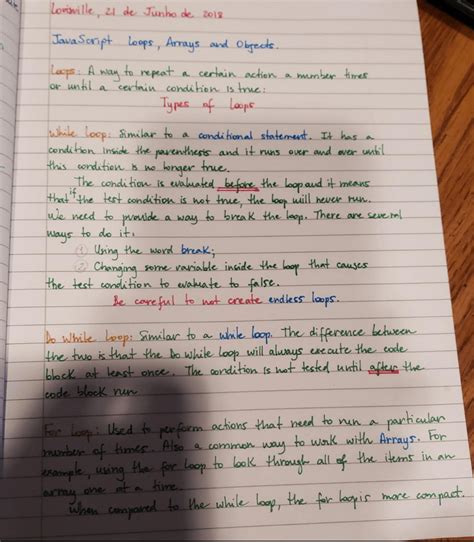 Louisville, 21 de Junho de 2018
JavaScript Loops, Arrays and Objects.
Loops: A way to repeat a certain action a number times
or until a certain condition is true:
Types of Loops
While Loop: Similar to a conditional statement. It has a
condition inside the parenthesis and it runs over and over until
this condition is no longer true.
The condition is evaluated before the loop and it means
that if the test condition is not true, the loop will never run.
We need to provide a way to break the loop. There are several
ways to do it:
① Using the word break;
② Changing some variable inside the loop that causes
the test condition to evaluate to false.
Be careful to not create endless loops.
Do While Loop: Similar to a while loop. The difference between
the two is that the Do While loop will always execute the code
block at least once. The condition is not tested until after the
code block run
For Loop: Used to perform actions that need to run a particular
number of times. Also a common way to work with Arrays. For
example, using the for loop to look through all of the items in an
array one at a time.
When compared to the while loop, the for loop is more compact.